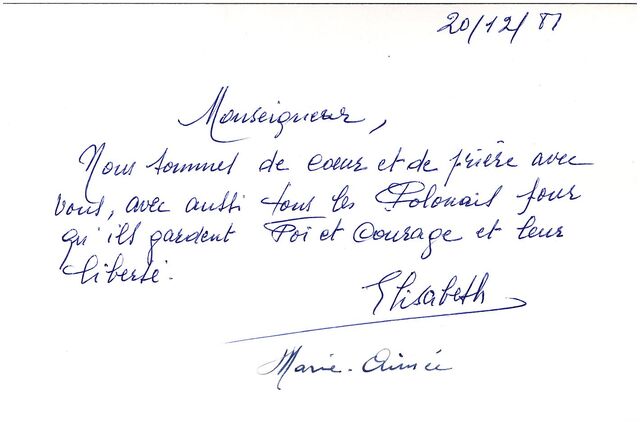 20/12/81
Monseigneur,
Nous sommes de cœur et de prière avec
vous, avec aussi tous les Polonais pour
qu'ils gardent Foi et Courage et leur
liberté.
Elisabeth
Marie-Aimée